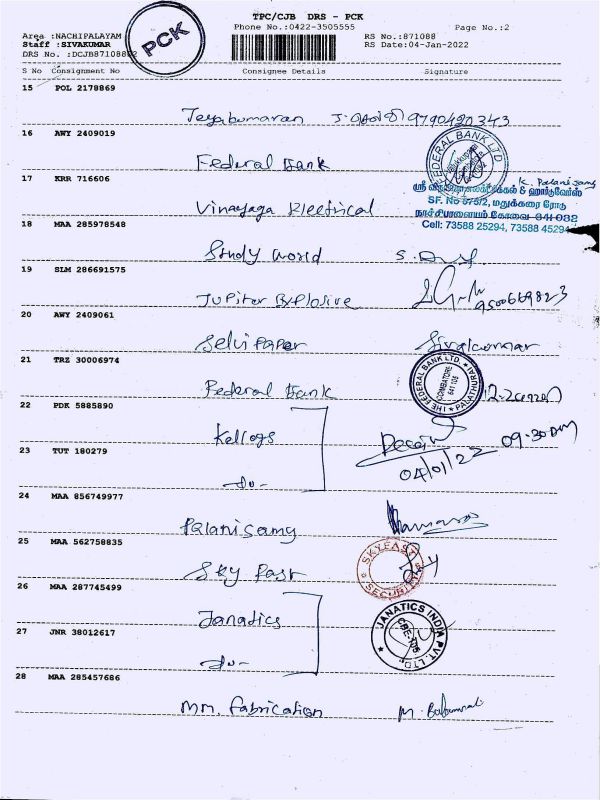 TPC/CJB DRS - PCK
Phone No.:0422-3505555
Page No.:2
PCK
Area :NACHIPALAYAM
RS No.:871088
Staff :SIVAKUMAR
RS Date:04-Jan-2022
DRS No. :DCJB8710882
S No Consignment No Consignee Details Signature
15 POL 2178869
Jeyakumaran 9790420343
16 AWY 2409019
Federal Bank
FEDERAL BANK LTD
17 KRR 716606
K. Palanisamy
SF. No 575/2, மதுக்கரை ரோடு
Vinayaga Electrical
நாச்சிபாளையம் கோவை 641 032
18 MAA 285978548
Cell: 73588 25294, 73588 45294
Study World
19 SLM 286691575
Jupiter Explosive
9500669823
20 AWY 2409061
Selvi Paper Sivakumar
21 TRZ 30006974
Federal Bank
THE FEDERAL BANK LTD. COIMBATORE 641 105
22 PDK 5885890
Kellogs
09.30
04/01/22
23 TUT 180279
-do-
24 MAA 856749977
Palanisamy
25 MAA 562758835
Sky Fast
SKYFAST SECURITIES
26 MAA 287745499
Janatics
JANATICS INDIA PVT. LTD.
CBE-105
27 JNR 38012617
-do-
28 MAA 285457686
MM. Fabrication